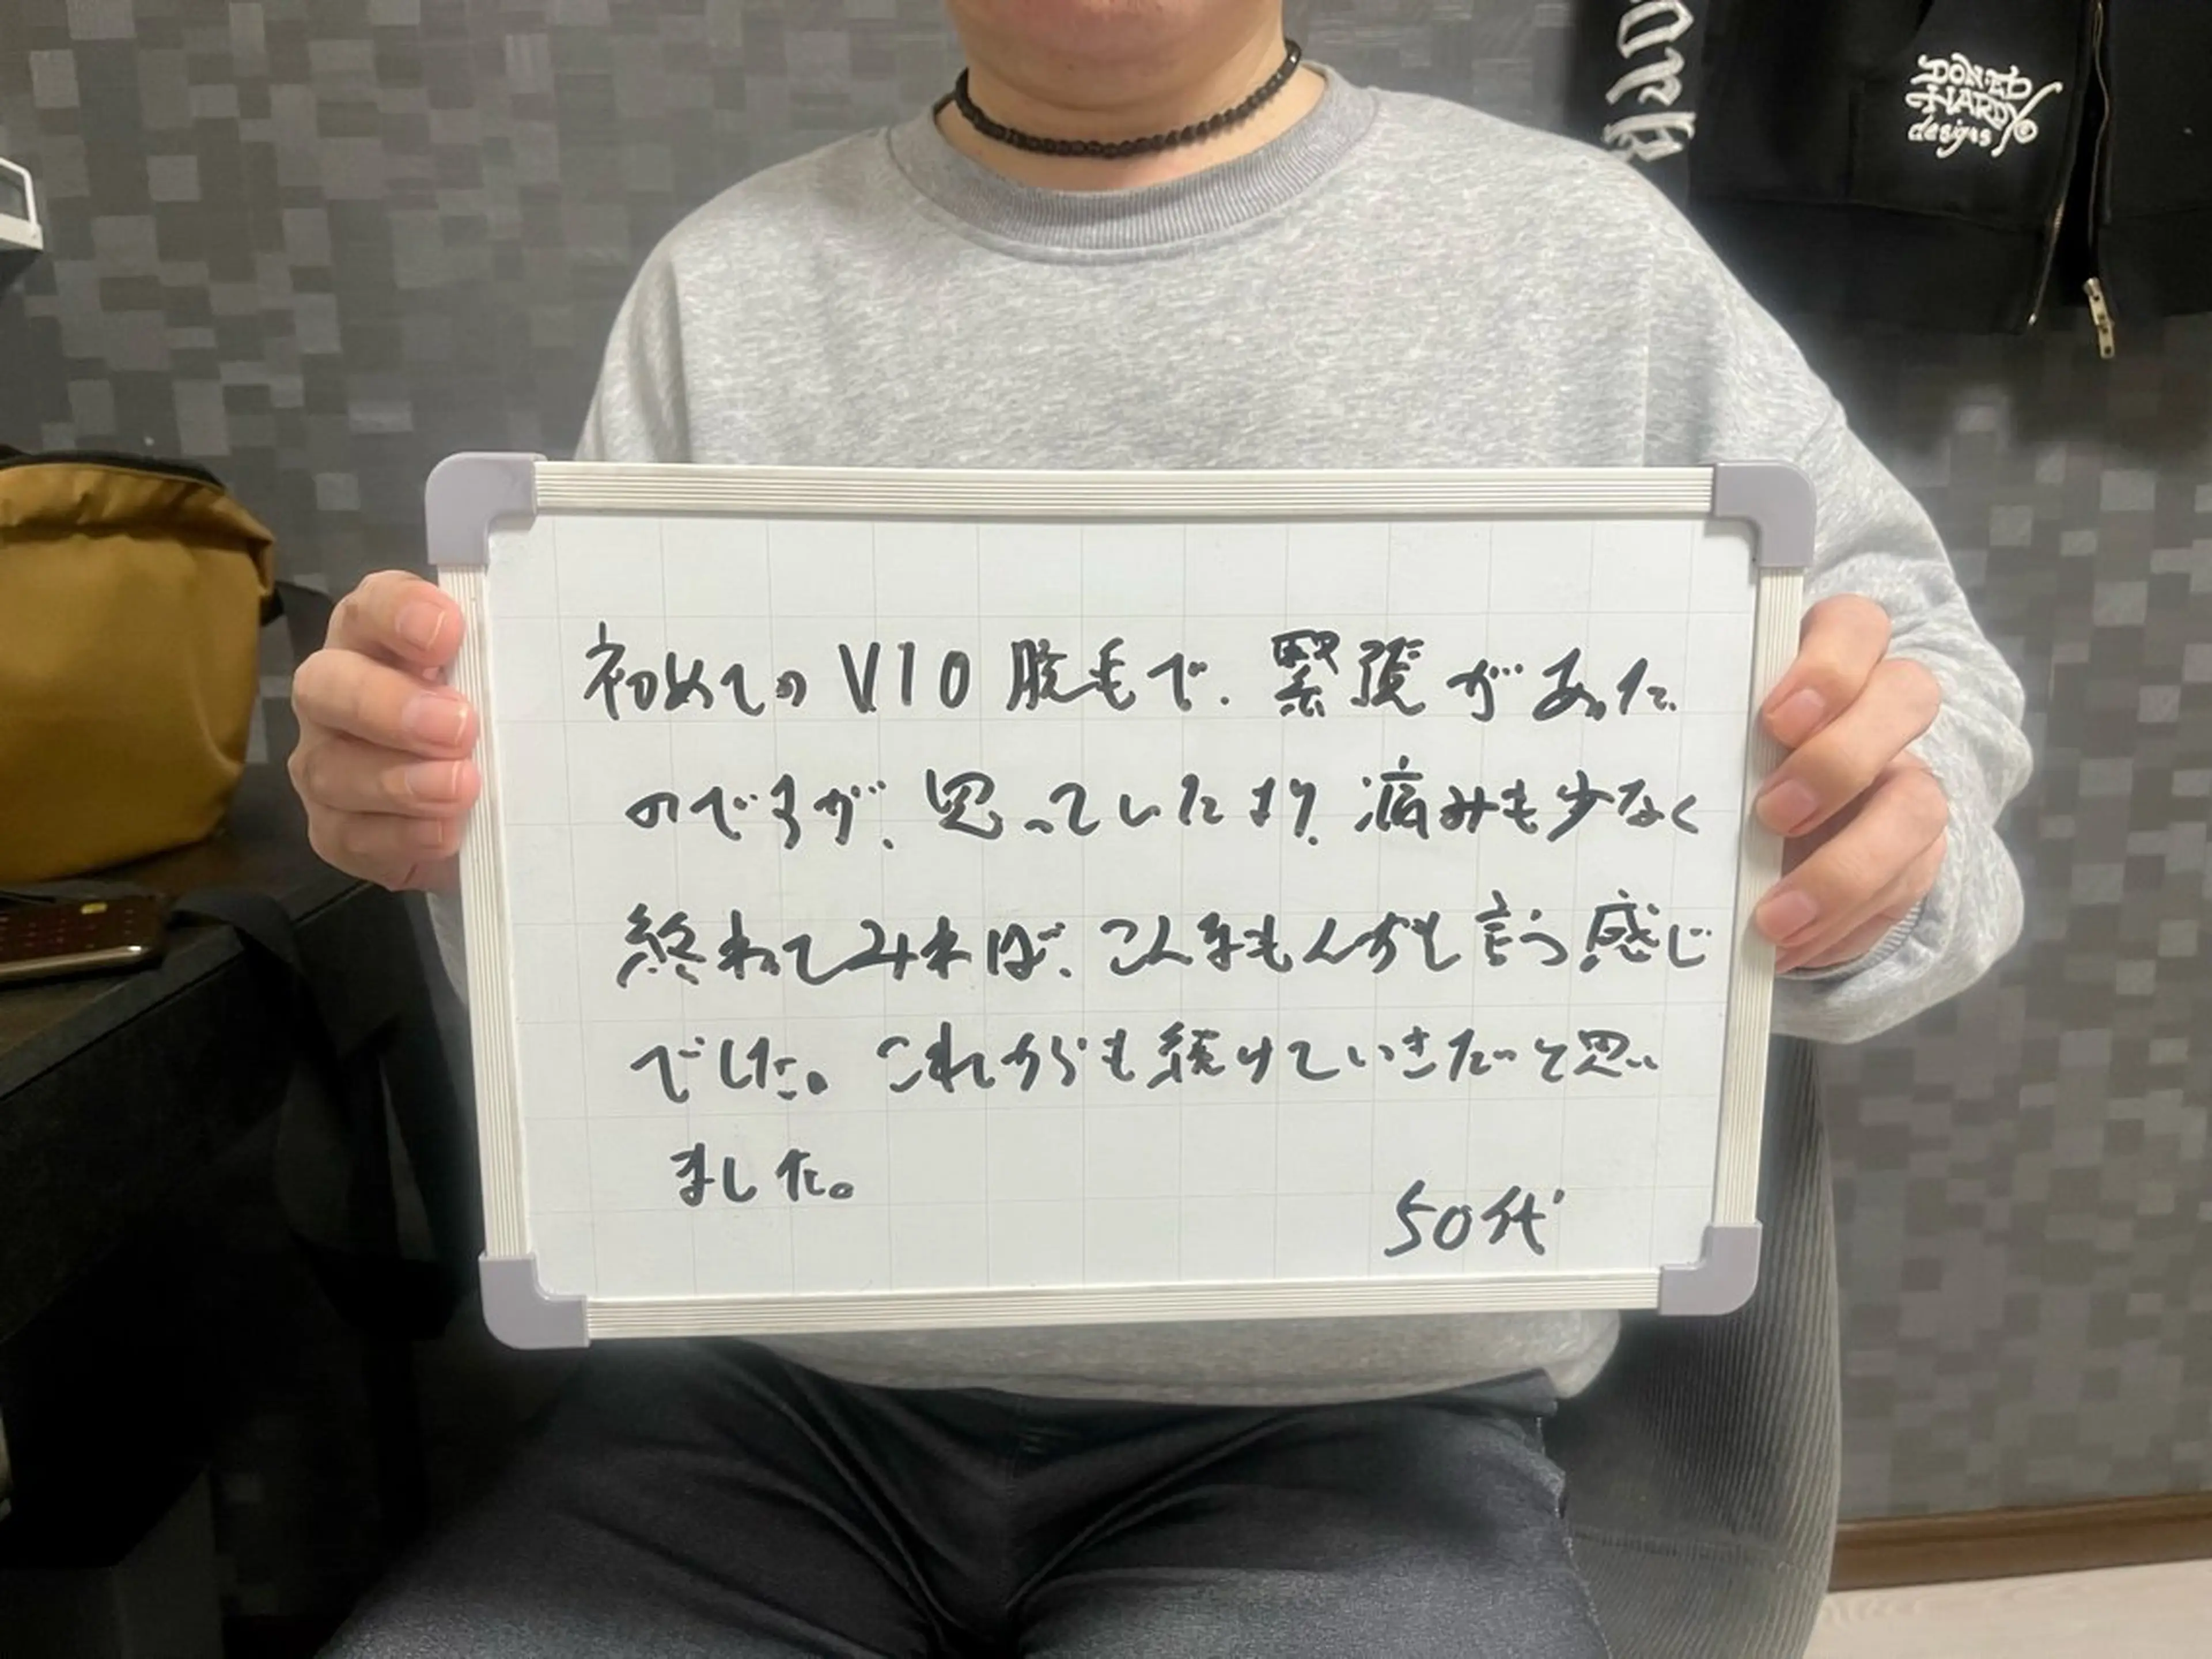 初めてのVIO脱毛で、緊張があった
のですが、思っていたより、痛みも少なく
終わってみれば、こんなもんかと言う感じ
でした。これからも続けていきたいと思い
ました。
50代
DON ED
HARDY
designs